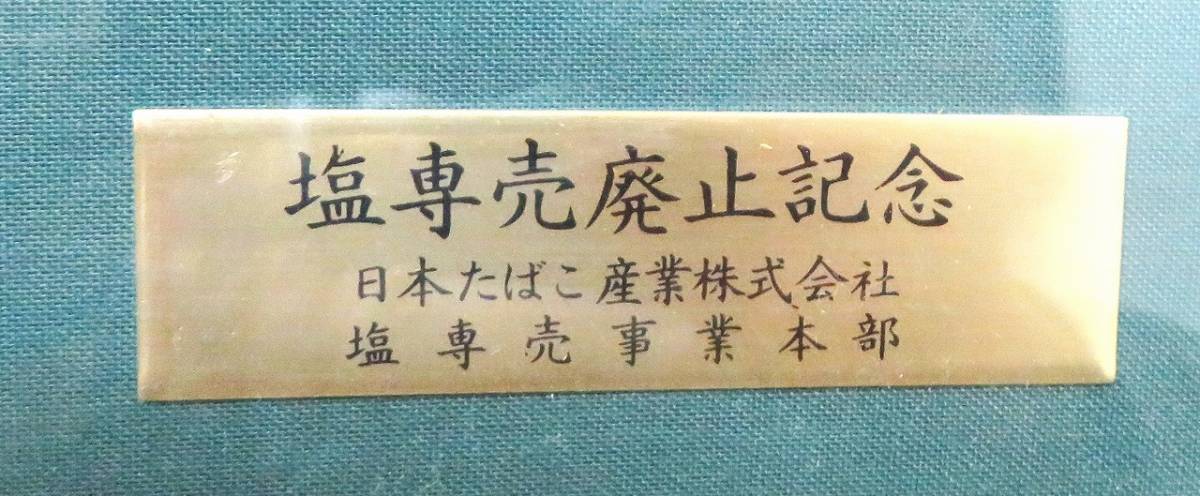 塩専売廃止記念
日本たばこ産業株式会社
塩専売事業本部